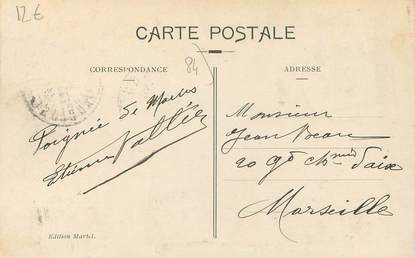 12€
CARTE POSTALE
CORRESPONDANCE
84
ADRESSE
Poignée de Mains
Etienne Vallier
Monsieur
Jean Bearc
20 Gd Chmin d'aix
Marseille
Edition Martel.